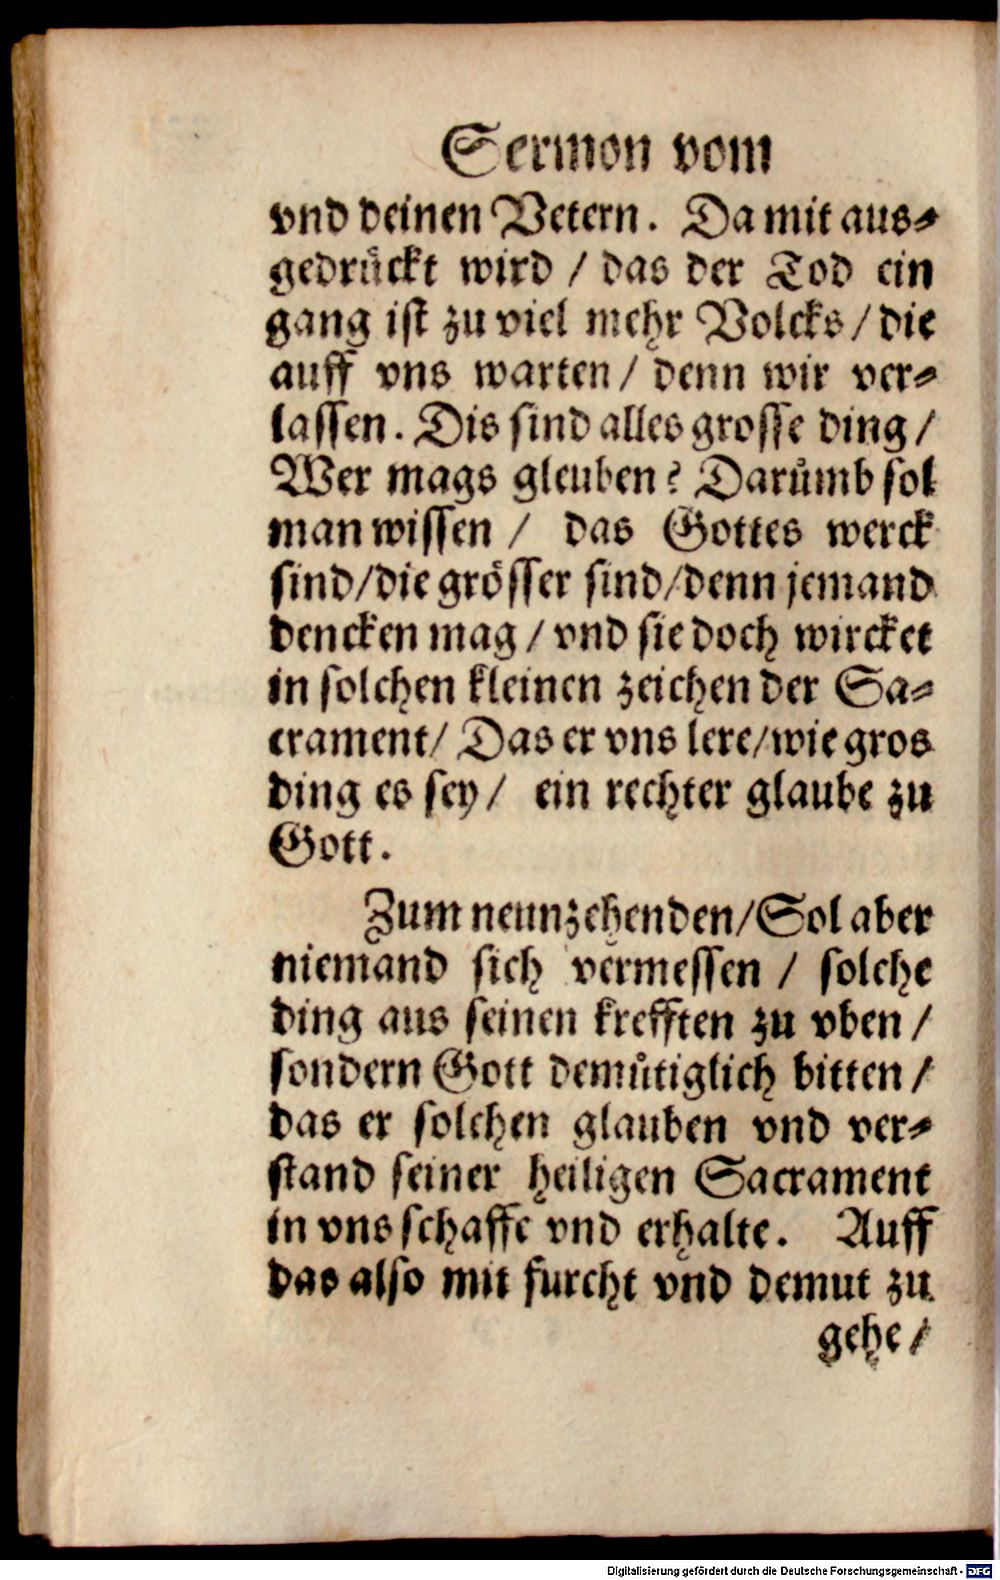 Sermon vom
vnd deinen Vetern. Da mit aus⸗
gedruͤckt wird / das der Tod ein
gang ist zu viel mehr Volcks / die
auff vns warten / denn wir ver⸗
lassen. Dis sind alles grosse ding /
Wer mags gleuben? Daruͤmb sol
man wissen / das Gottes werck
sind/die groͤsser sind/denn jemand
dencken mag / vnd sie doch wircket
in solchen kleinen zeichen der Sa⸗
crament/ Das er vns lere/wie gros
ding es sey / ein rechter glaube zu
Gott.
Zum neunzehenden/Sol aber
niemand sich vermessen / solche
ding aus seinen krefften zu vben /
sondern Gott demuͤtiglich bitten /
das er solchen glauben vnd ver⸗
stand seiner heiligen Sacrament
in vns schaffe vnd erhalte. Auff
das also mit furcht vnd demut zu
gehe /
Digitalisierung gefördert durch die Deutsche Forschungsgemeinschaft - DFG